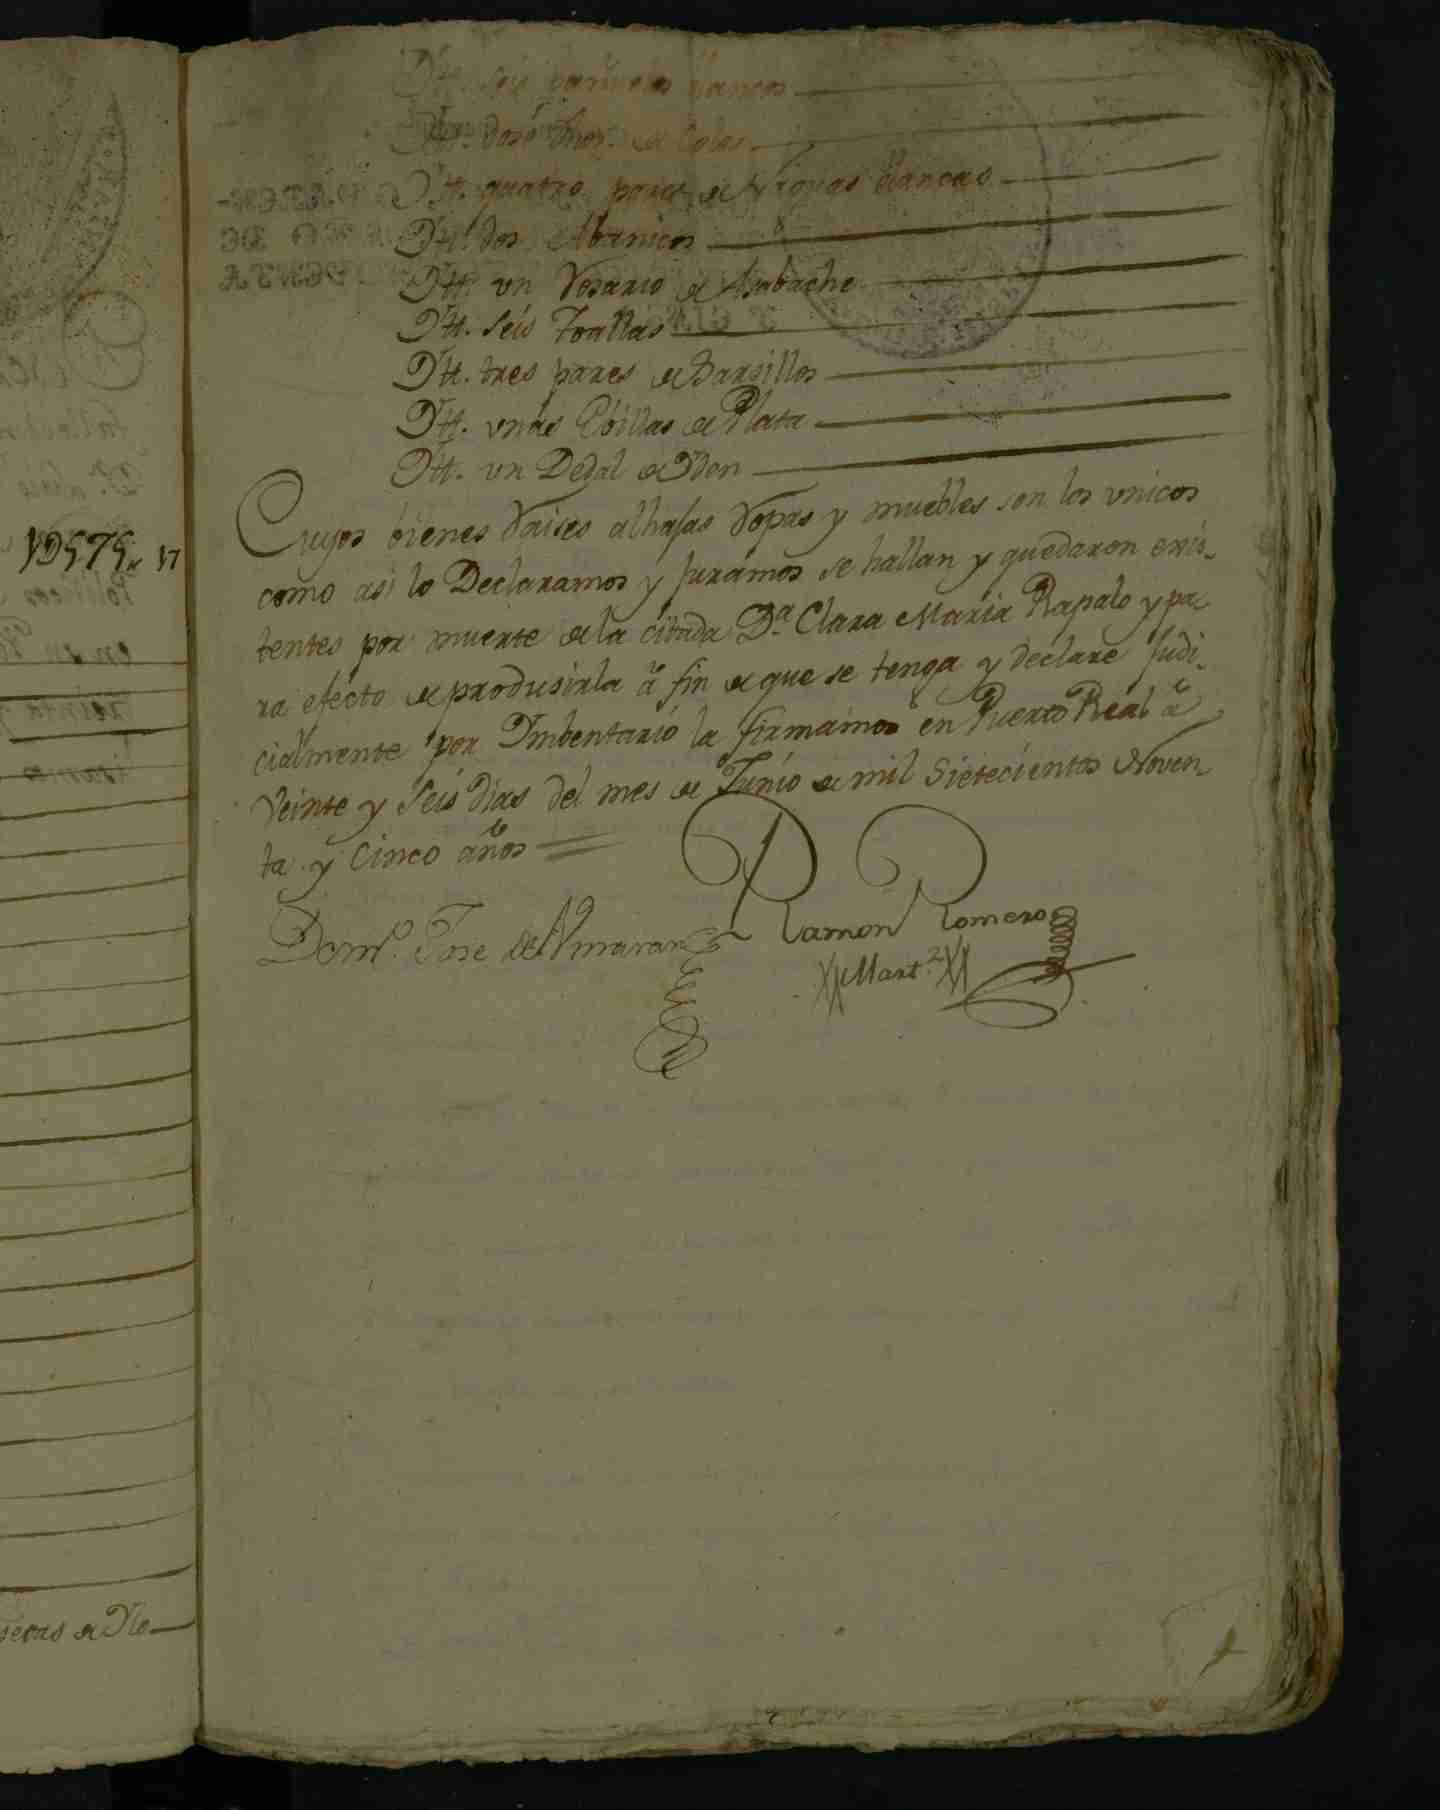 Dtt. seis pañuelos blancos
Dtt. dos de Color
Dtt. quatro pares de Naguas blancas
Dtt. dos Abanicos
Dtt. vn Rosario de Asabache
Dtt. seis Toallas
Dtt. tres pares de Sarsillos
Dtt. vnas Ebillas de Plata
Dtt. vn Dedal de Ydem
Cuyos bienes Raises alhajas Ropas y muebles son los vnicos
como asi lo Declaramos y juramos se hallan y quedaron exis-
tentes por muerte de la citada Dª. Clara Maria Rapalo y pa-
ra efecto de produsirla â fin de que se tenga y declare judi-
cialmente por Ymbentario la firmamos en Puerto Real â
Veinte y seis Dias del mes de Junio de mil Setecientos Noven
ta y Cinco años
Domº. Jose de
Ramon Romero
Martz.
19575
17
secas de No